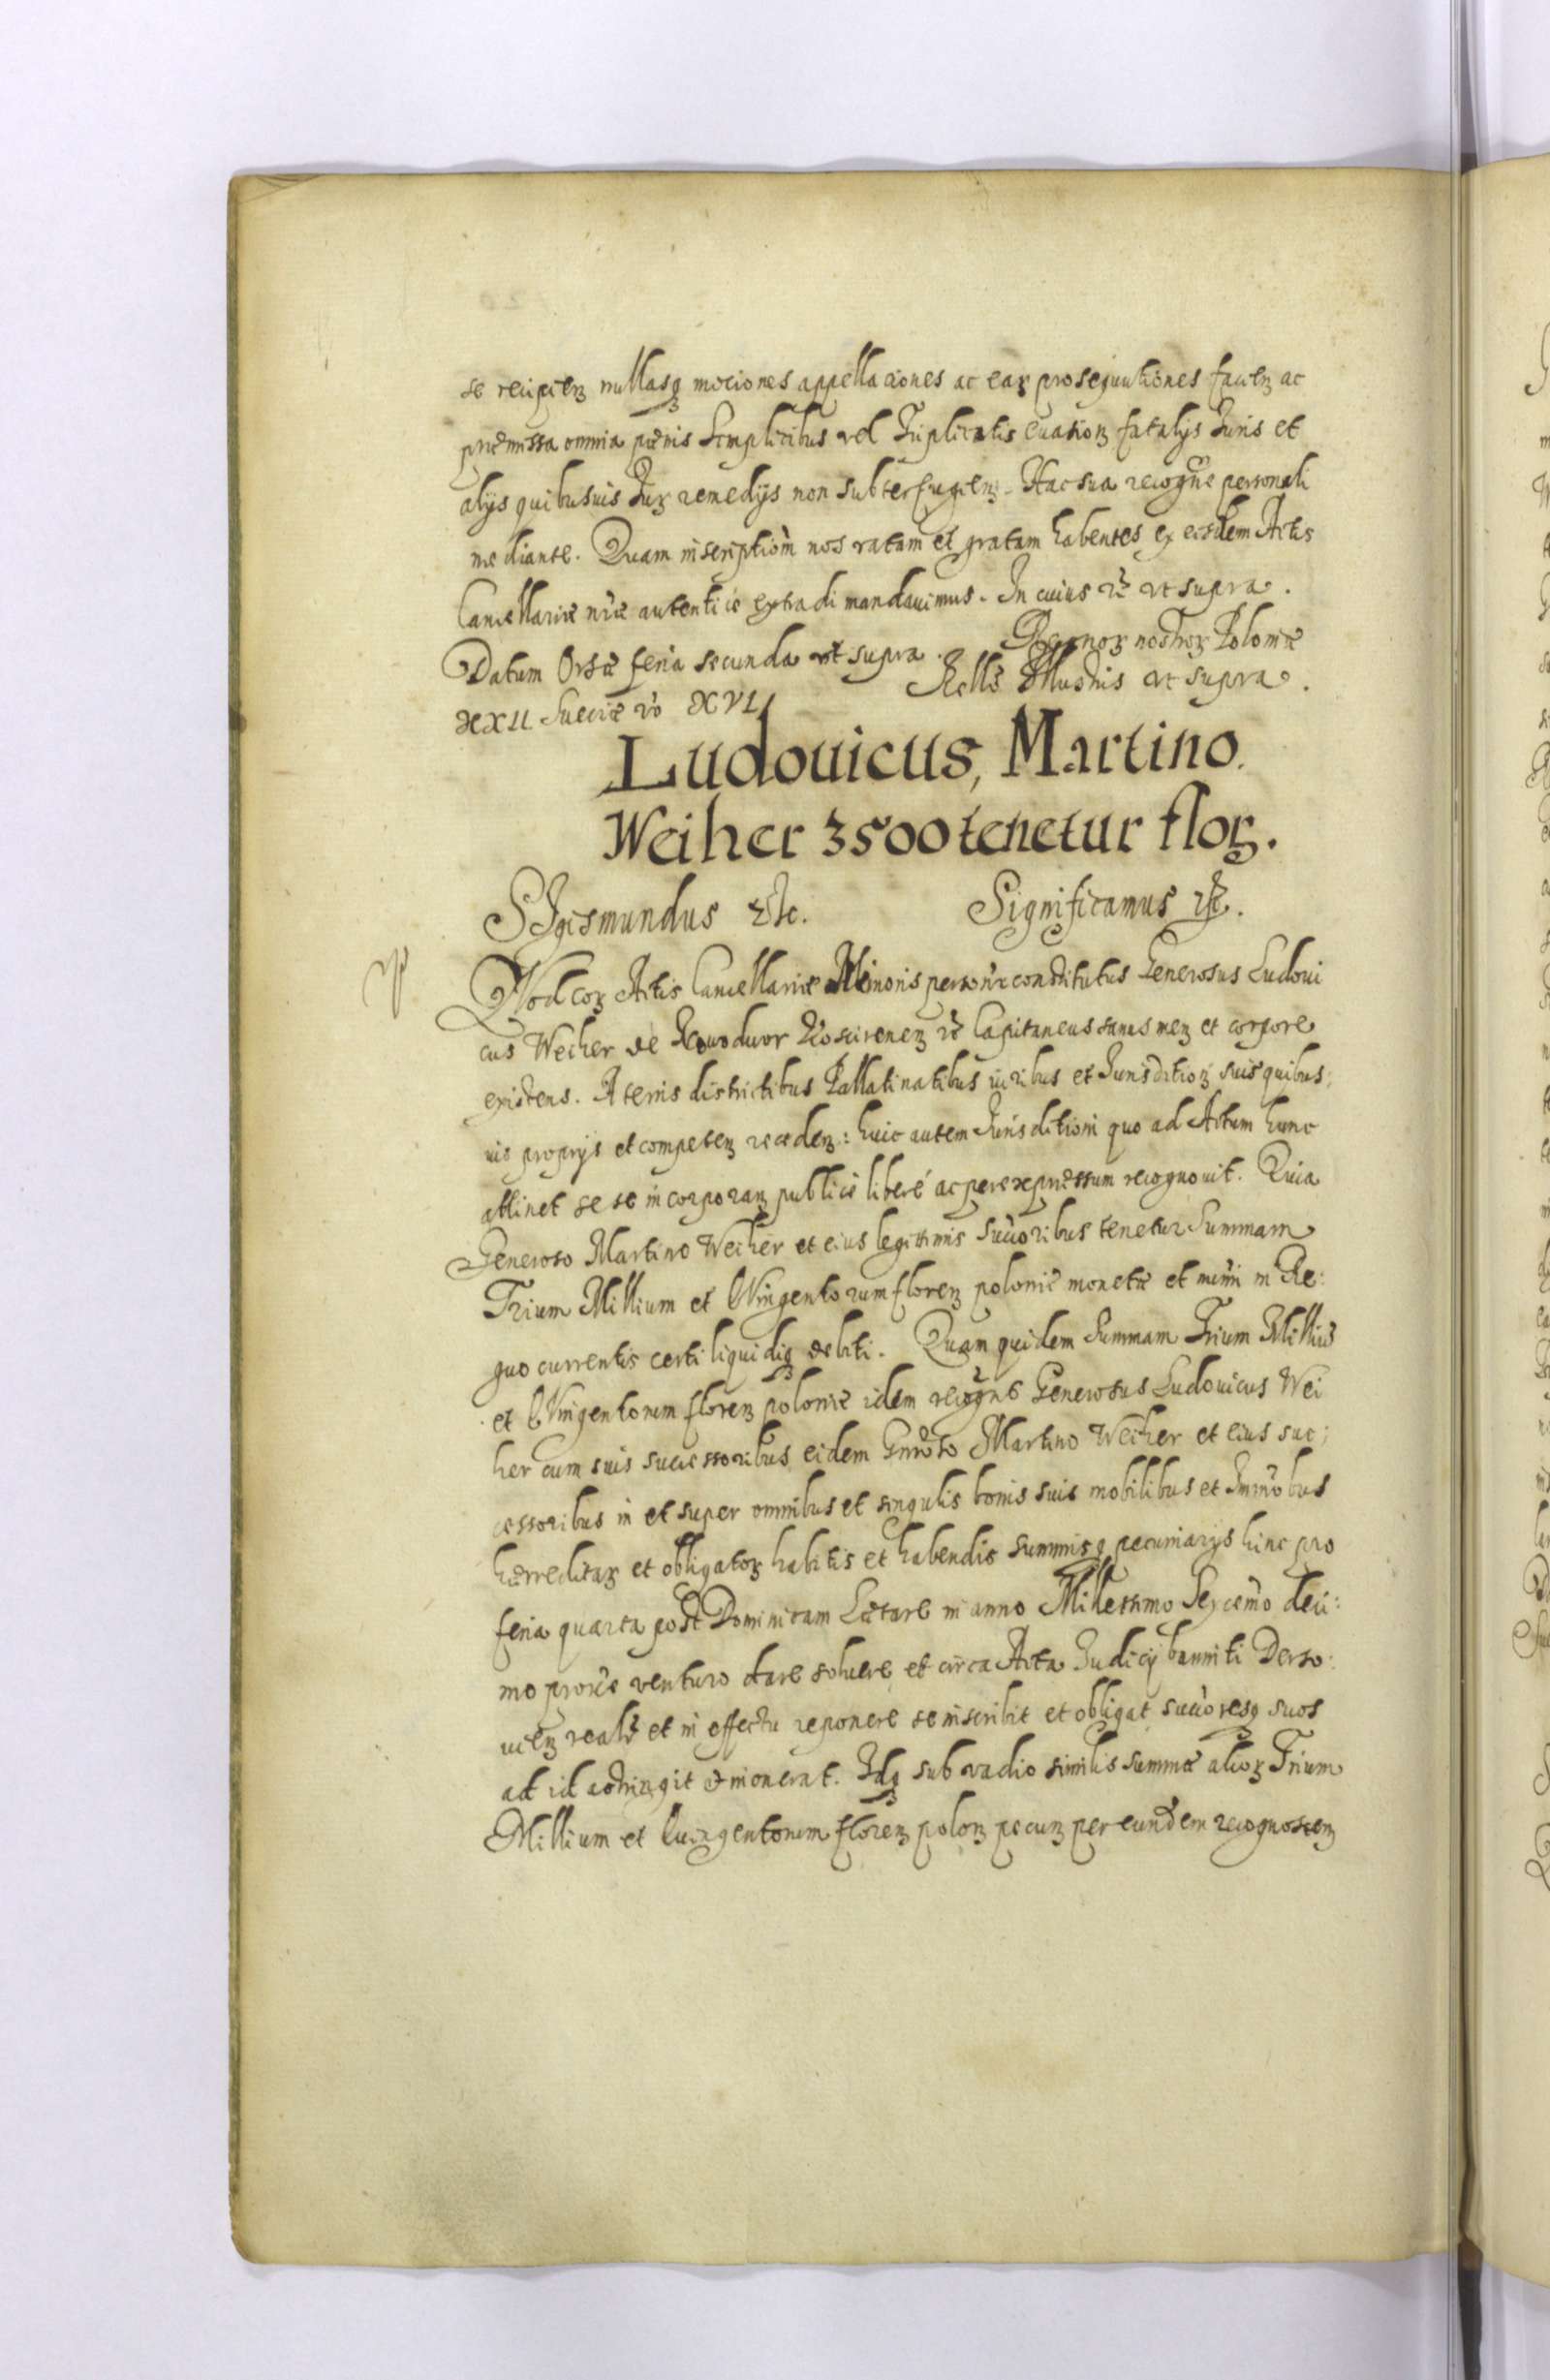 se recipien nullasq mociones appellaciones ac eaꝝ prosequutiones facien ac
præmissa omnia pœnis simplicibus vel Triplicatis euasioꝝ fatalijs Juris et
alijs quibusuis Juꝝ remedijs non subterfugien. Hac sua recogne personali
mediante. Quam inscriptiom nos ratam et gratam habentes ex eisdem Actis
Cancellariæ nræ autentice extradi mandauimus. In cuius rē vt supra.
Datum Orsæ feria secunda vt supra. Regnoꝝ nostroꝝ Poloniæ
XXII Sueciæ vo XVI Rello Illustris vt supra.
Ludouicus, Martino.
Weiher 3500 tenetur floꝝ.
SIgismundus etc. Significamus etc.
QVod coꝝ Actis Cancellariæ Minoris personr constitutus Generosus Ludoui
cus Weiher de Nouoduor Koscirenꝝ etc Capitaneus sanus menꝝ et corpore
existens. A terris districtibus Pallatinatibus iuribus et Jurisditioꝝ suis quibus;
uis proprijs et competenꝝ recedenꝝ: huic autem Jurisditioni quo ad Actum hunc
attinet se se incorporanꝝ publice libere ac per expressum recognouit. Quia
Generoso Martino Weiher et eius legittimis succoribus tenetur Summam
Trium Millium et QVingentorum florenꝝ poloniæ monetæ et numi in Re:
gno currentis certi liquidiq debiti. Quam quidem Summam Trium Milliū
et QVingentorum florenꝝ poloniæ idem recogns Generosus Ludouicus Wei
her cum suis successoribus eidem Gnroso Martino Weiher et eius suc;
cessoribus in et super omnibus et singulis bonis suis mobilibus et Immobus
hærreditaꝝ et obligatoꝝ habitis et habendis summisq pecuniarijs hinc pro
feria quarta post Dominicam Lætare in anno Millesimo Sexcemo deci:
mo prore venturo dare soluere et circa Acta Judicij banniti Derso:
uienꝝ realr et in effectu reponere se inscribit et obligat succoresq suos
ad id adstringit et inonerat. Idq sub vadio similis summæ alioꝝ Trium
Millium et Quingentorum florenꝝ polonꝝ pecunꝝ per eundem recognoscenꝝ